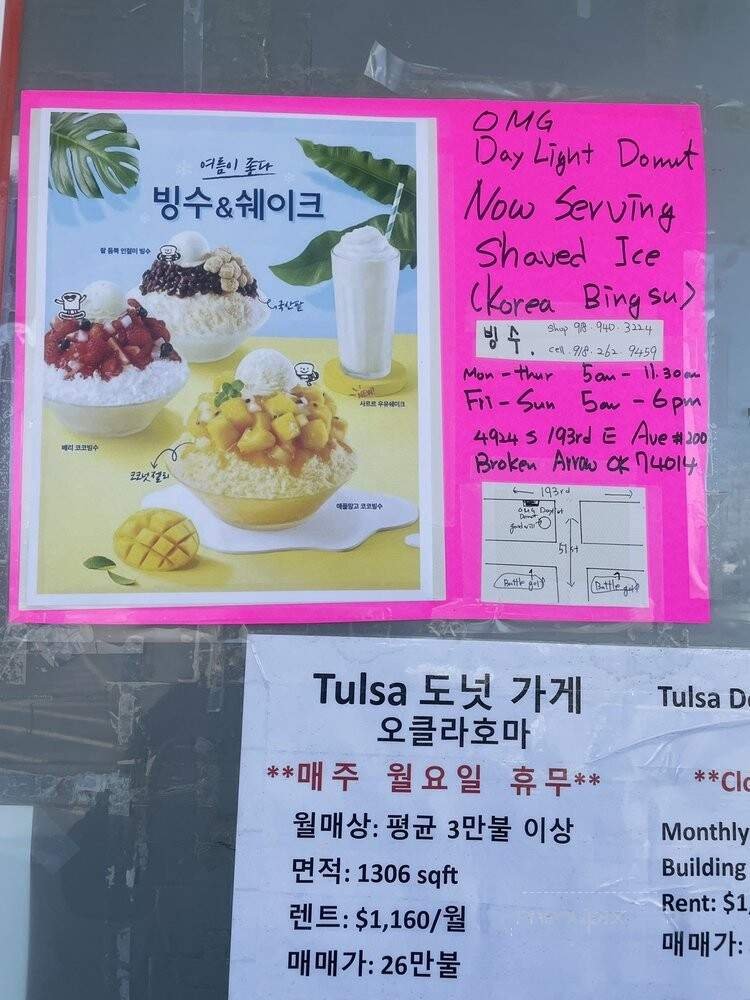 여름이 좋다
빙수&쉐이크
팥 듬뿍 인절미 빙수
국산팥
NEW!
사르르 우유쉐이크
베리 코코빙수
코코넛젤리
애플망고 코코빙수
OMG
Day Light Donut
Now Serving
Shaved Ice
(Korea Bingsu)
빙수. shop 918.940.3224
cell.918.262.9459
Mon-thur 5am - 11.30am
Fri-Sun 5am - 6pm
4924 S 193rd E Ave #200
Broken Arrow OK 74014
193rd
OMG
Donut
51st
Tulsa 도넛 가게
오클라호마
**매주 월요일 휴무**
월매상: 평균 3만불 이상
면적: 1306 sqft
렌트: $1,160/월
매매가: 26만불
Tulsa Do
**Clo
Monthly
Building
Rent: $1,
매매가: